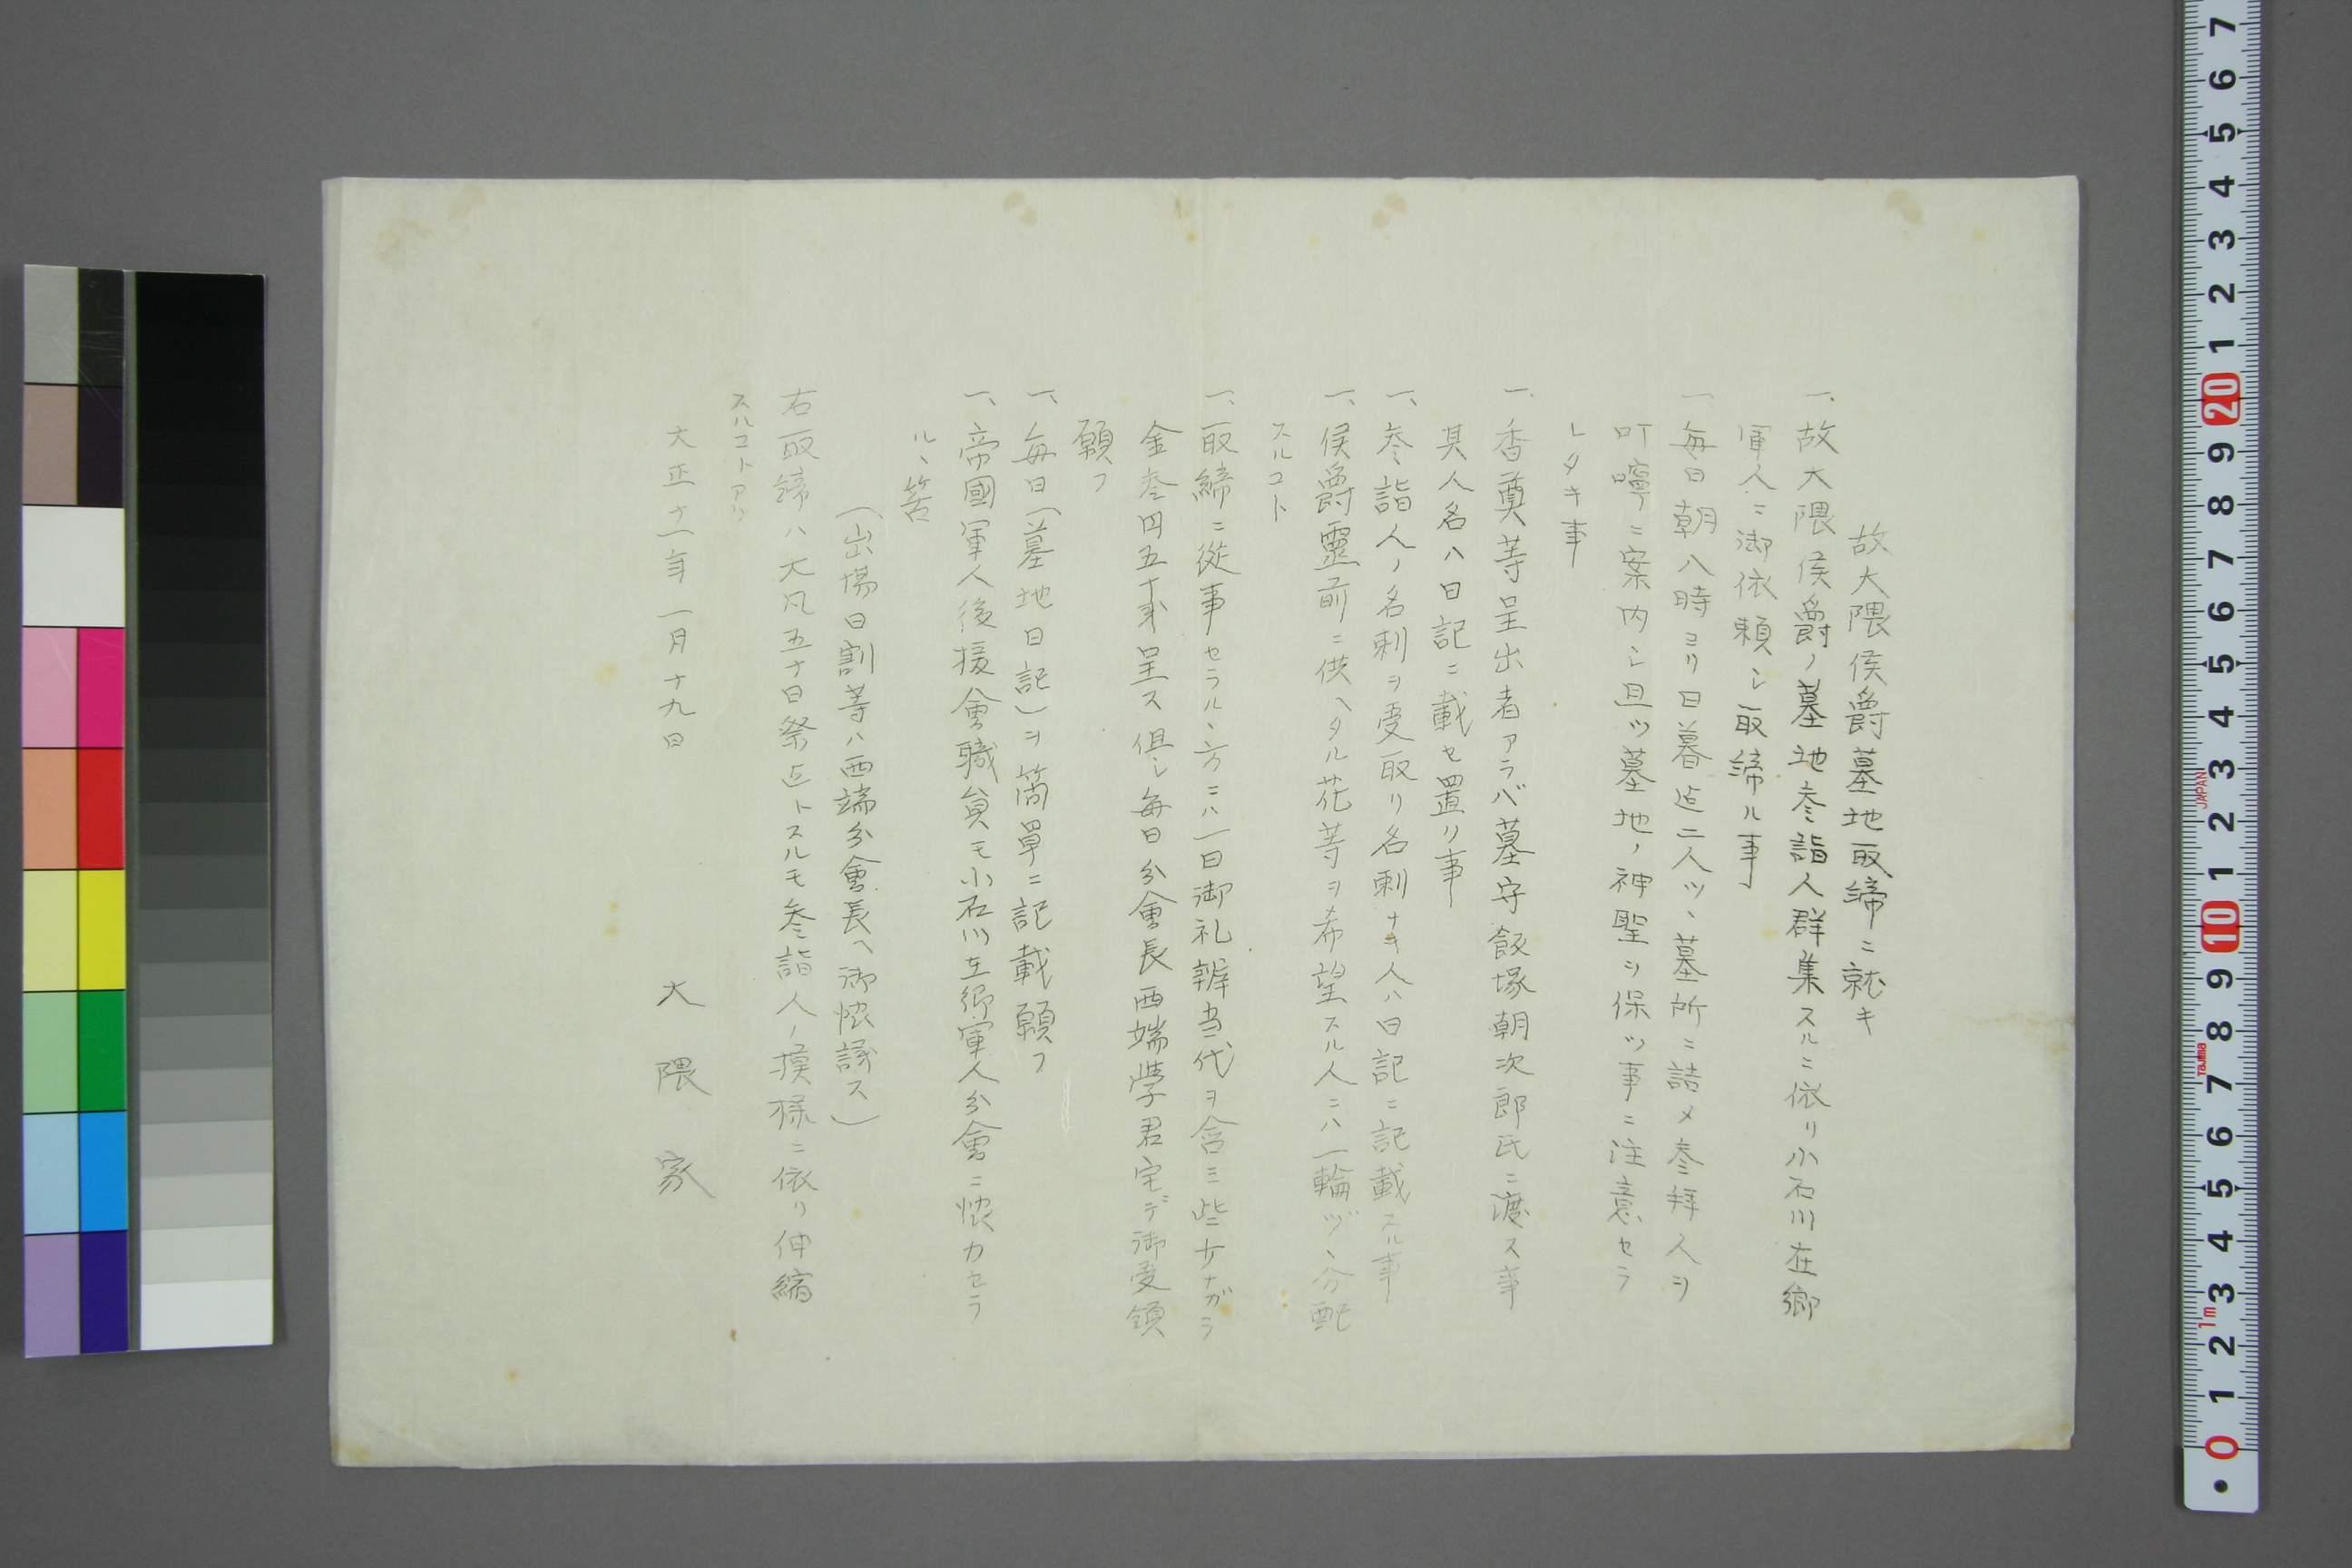 故大隈侯爵墓地取締ニ就キ
一、故大隈侯爵ノ墓地参詣人群集スルニ依リ小石川在郷
軍人ニ御依頼シ取締ル事
一、毎日朝八時ヨリ日暮迠二人ツヽ墓所ニ詰メ参拜人ヲ
叮嚀ニ案内シ且ツ墓地ノ神聖ヲ保ツ事ニ注意セラ
レタキ事
一、香奠等呈出者アラバ墓守飯塚朝次郎氏ニ渡ス事
其人名ハ日記ニ載セ置リ事
一、参詣人ノ名刺ヲ受取リ名刺ナキ人ハ日記ニ記載スル事
一、侯爵靈前ニ供ヘタル花等ヲ希望スル人ニハ一輪ヅヽ分配
スルコト
一、取締ニ從事セラルヽ方ニハ一日御礼辨当代ヲ含ミ些少ナガラ
金参円五十銭呈ス但シ毎日分會長西端學君宅デ御受領
願フ
一、毎日(墓地日記)ヲ簡單ニ記載願フ
一、帝國軍人後援會職員モ小石川在郷軍人分會ニ恊力セラ
ルヽ筈
(出場日割等ハ西端分會長ヘ御恊議ス)
右取締ハ大凡五十日祭迠トスルモ参詣人ノ摸様ニ依リ伸縮
スルコトアリ
大正十一年一月十九日
大隈家
7 6 5 4 3 2 1 20 9 8 7 6 5 4 3 2 1 10 9 8 7 6 5 4 3 2 1 0
JAPAN
Tajima
1m